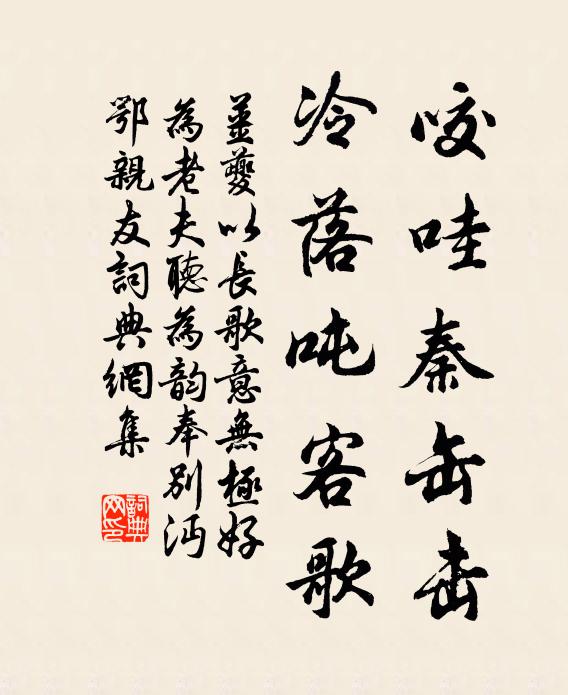 咬哇秦缶击
冷落吨客歌
姜夔以长歌意無極好
為老夫聽為韵奉别沔
鄂親友詞典網集
詞典网印